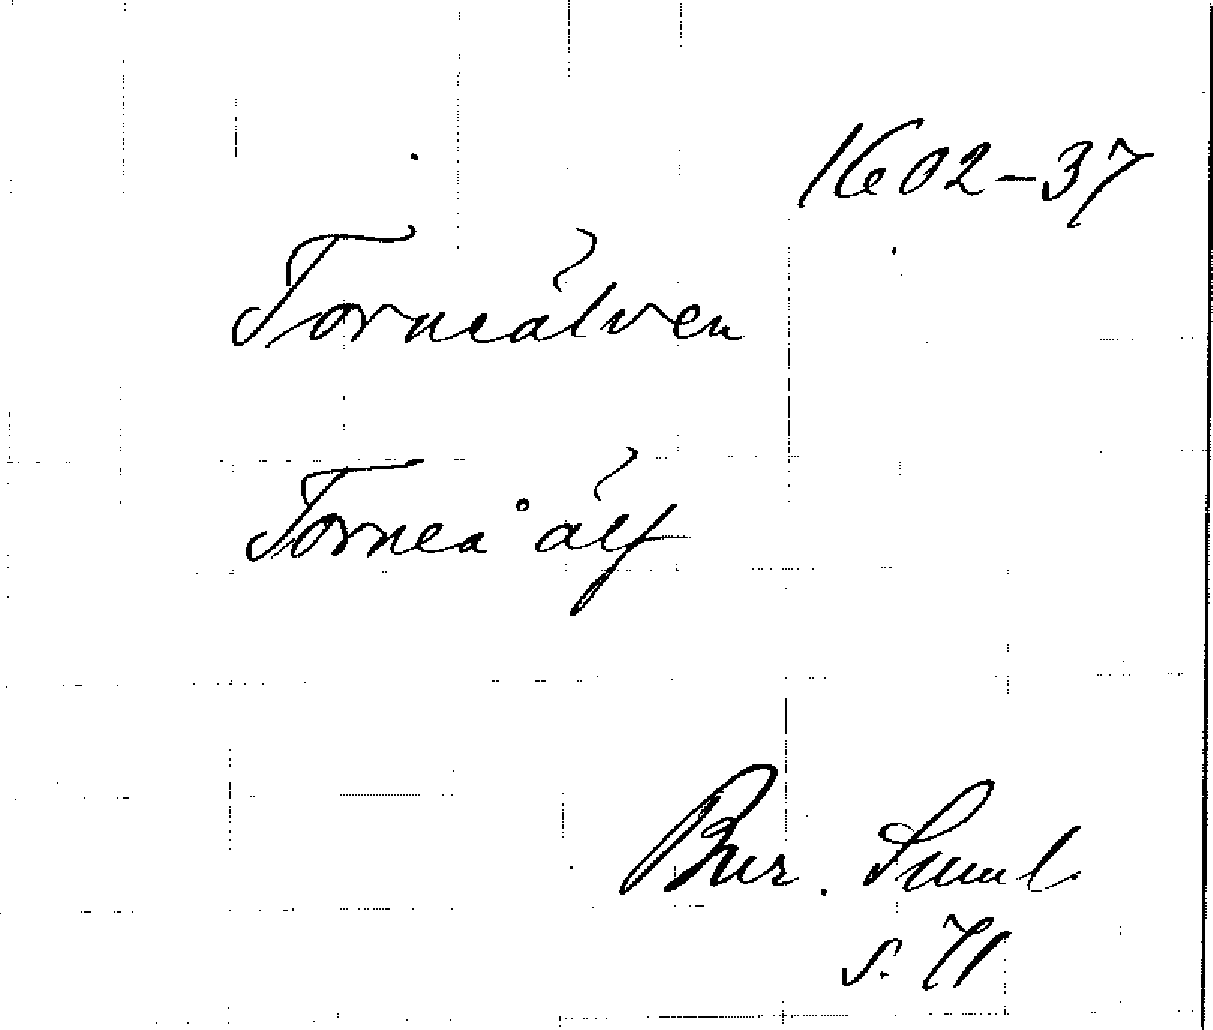 1602-37
Torneälven
Torneå älf
Bur. Suml
s. 71